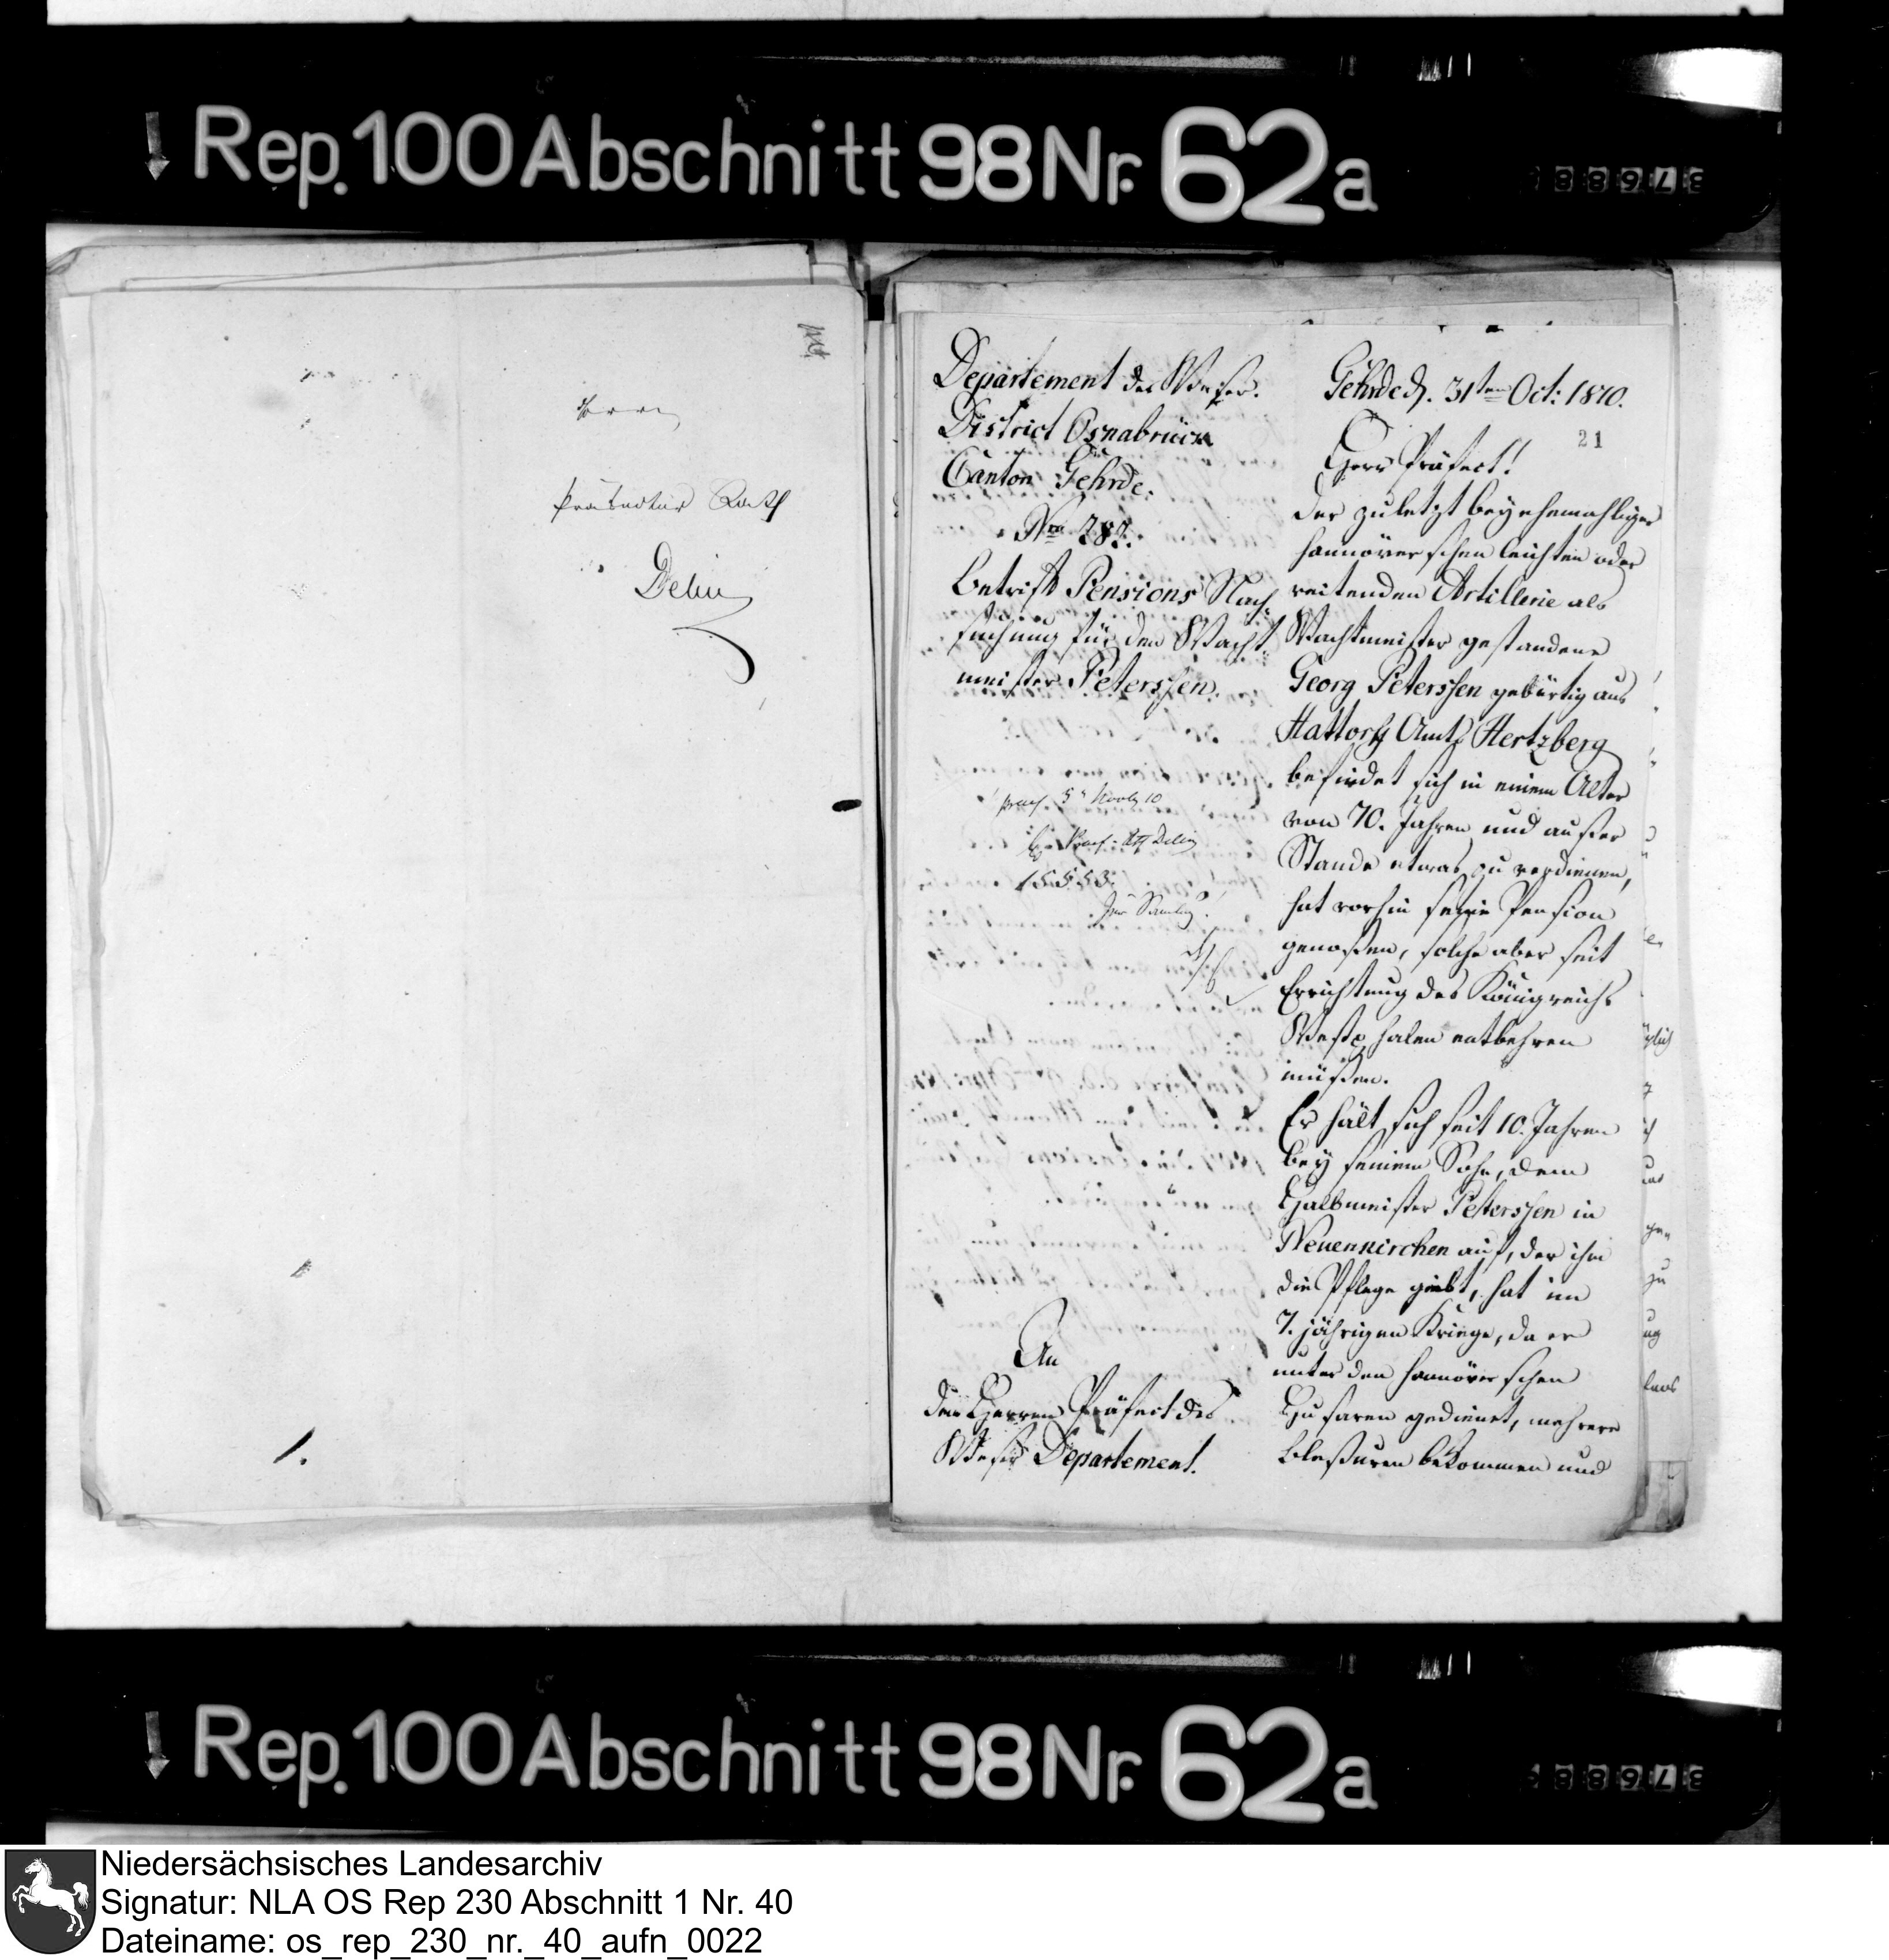 Rep. 100 Abschnitt 98 Nr. 62a
Herrn
Präfectur Rath
Delius
1.
Departement der Weser.
District Osnabrück
Canton Gehrde.
Nro 287.
Betrift Pensions Nach-
suchung für den Wacht-
meister Peterssen.
praes. 5n Novbr 10
H. Praef. Rth Delius
15553.
An
den Herren Präfect des
Weser Departement.
Gehrde d. 31ten Oct: 1810.
21
Herr Präfect!
Der zuletzt bey ehemahliger
hannöverschen leichten oder
reitenden Artillerie als
Wachtmeister gestandene
Georg Peterssen gebürtig aus
Hattorff Amts Hertzberg
befindet sich in einem Alter
von 70. Jahren und außer
Stande etwas zu verdienen,
hat vorhin seine Pension
genoßen, solche aber seit
Errichtung des Königreichs
Westphalen entbehren
müßen.
Er hält sich seit 10. Jahren
bey seinem Sohn, dem
Halbmeister Peterssen in
Neuenkirchen auf, der ihm
die Pflege giebt, hat im
7. jährigen Kriege, da er
unter den hannöverschen
Husaren gedienet, mehrere
Bleßuren bekommen und
Rep. 100 Abschnitt 98 Nr. 62a
Niedersächsisches Landesarchiv
Signatur: NLA OS Rep 230 Abschnitt 1 Nr. 40
Dateiname: os_rep_230_nr._40_aufn_0022